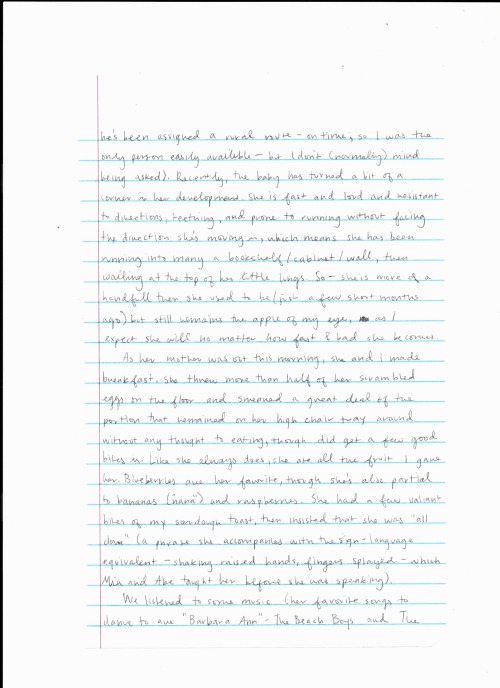 he's been assigned a rural route - on time, so I was the
only person easily available - but I don't (normally) mind
being asked). Recently, the baby has turned a bit of a
corner in her development. She is fast and loud and resistant
to directions, teething, and prone to running without facing
the direction she's moving in, which means she has been
running into many a bookshelf/cabinet/wall, then
wailing at the top of her little lungs. So - she is more of a
handfull then she used to be (just a few short months
ago) but still remains the apple of my eye, as I
expect she will no matter how fast & bad she becomes.
As her mother was out this morning, she and I made
breakfast. She threw more than half of her scrambled
eggs on the floor and smeared a great deal of the
portion that remained on her high chair tray around
without any thought to eating, though did get a few good
bites in. Like she always does, she ate all the fruit I gave
her. Blueberries are her favorite, though she's also partial
to bananas ("nana") and raspberries. She had a few valiant
bites of my sourdough toast, then insisted that she was "all
done" (a phrase she accompanies with the sign-language
equivalent - shaking raised hands, fingers splayed - which
Mia and Abe taught her before she was speaking).
We listened to some music (her favorite songs to
dance to are "Barbara Ann" - The Beach Boys and The